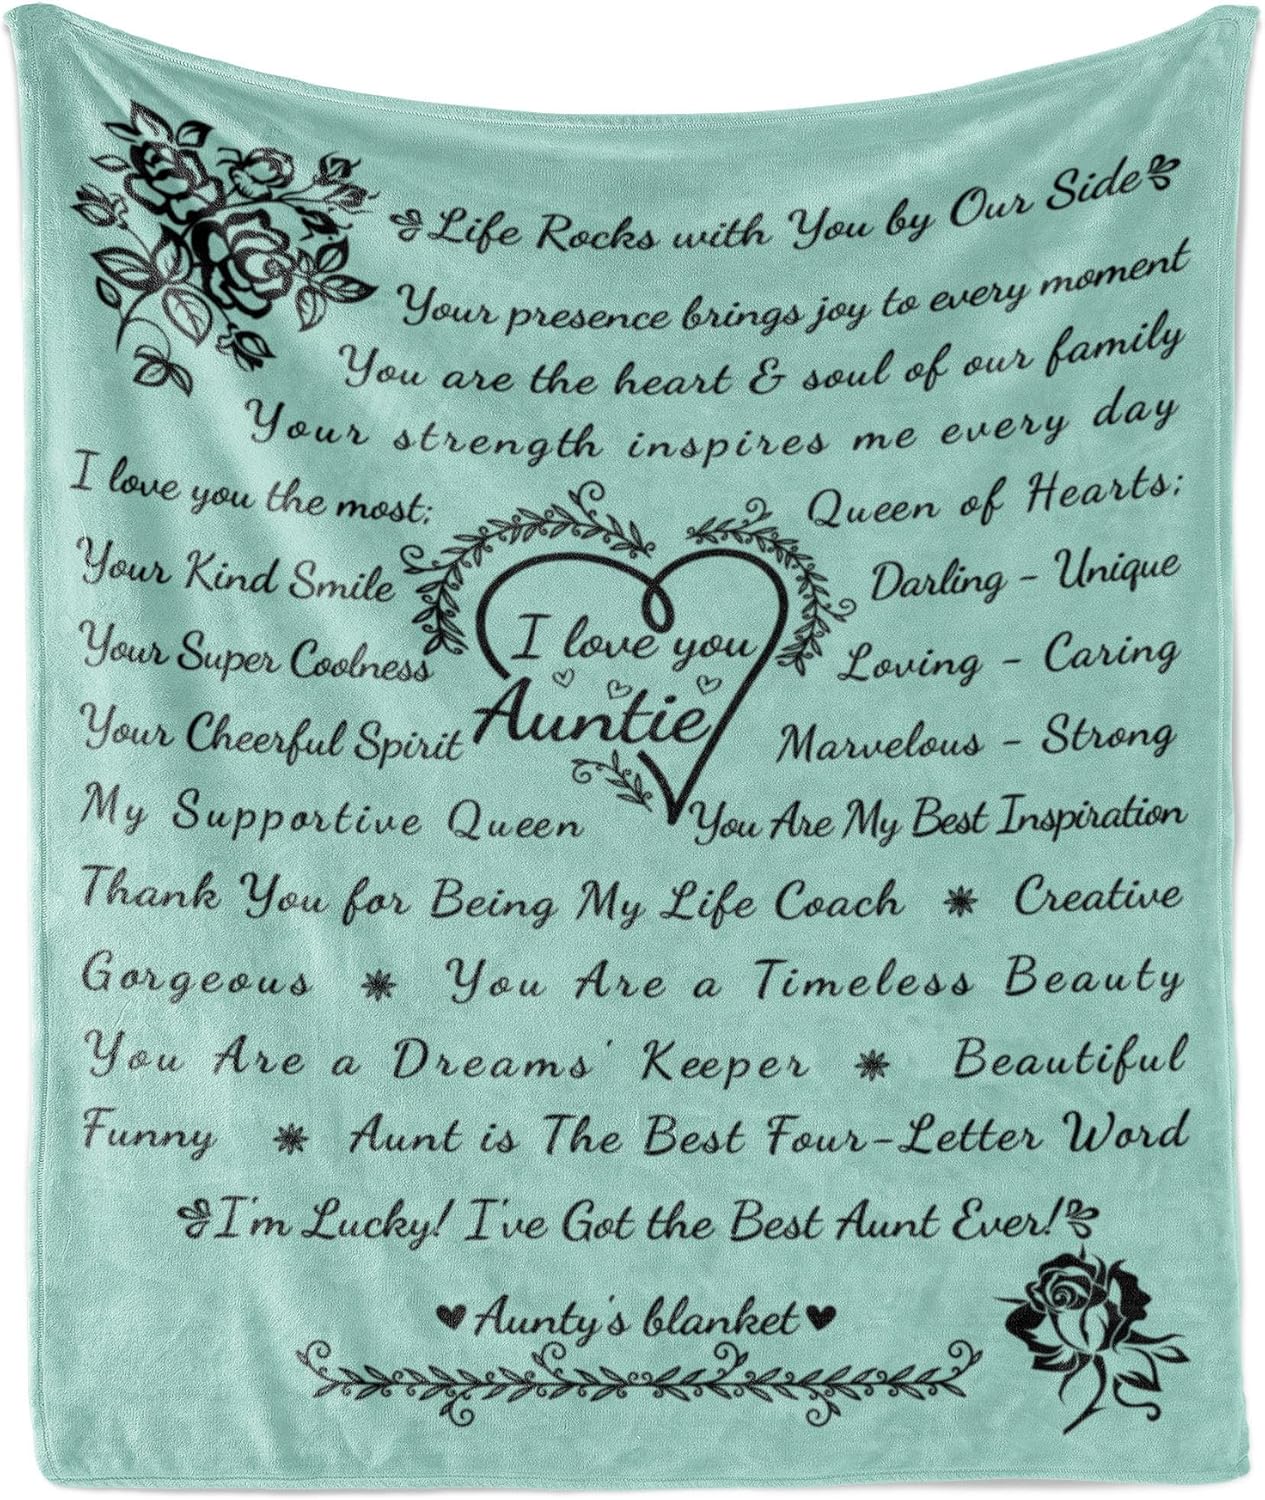 Life Rocks with You by Our Side
Your presence brings joy to every moment
You are the heart & soul of our family
Your strength inspires me every day
I love you the most:
Your Kind Smile
Your Super Coolness
Your Cheerful Spirit
My Supportive Queen
I love you
Auntie
Queen of Hearts:
Darling - Unique
Loving - Caring
Marvelous - Strong
You Are My Best Inspiration
Thank You for Being My Life Coach * Creative
Gorgeous * You Are a Timeless Beauty
You Are a Dreams' Keeper * Beautiful
Funny * Aunt is The Best Four-Letter Word
I'm Lucky! I've Got the Best Aunt Ever!
♥Aunty's blanket♥